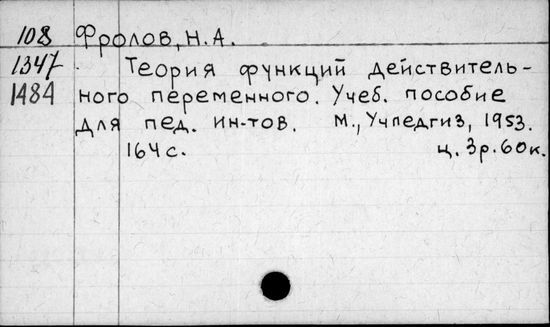 108 Фролов, Н.А.
1347 Теория функций действитель-
1484 ного переменного. Учеб. пособие
для пед. ин-тов. М., Учпедгиз, 1953.
164с. ц. 3р.60к.